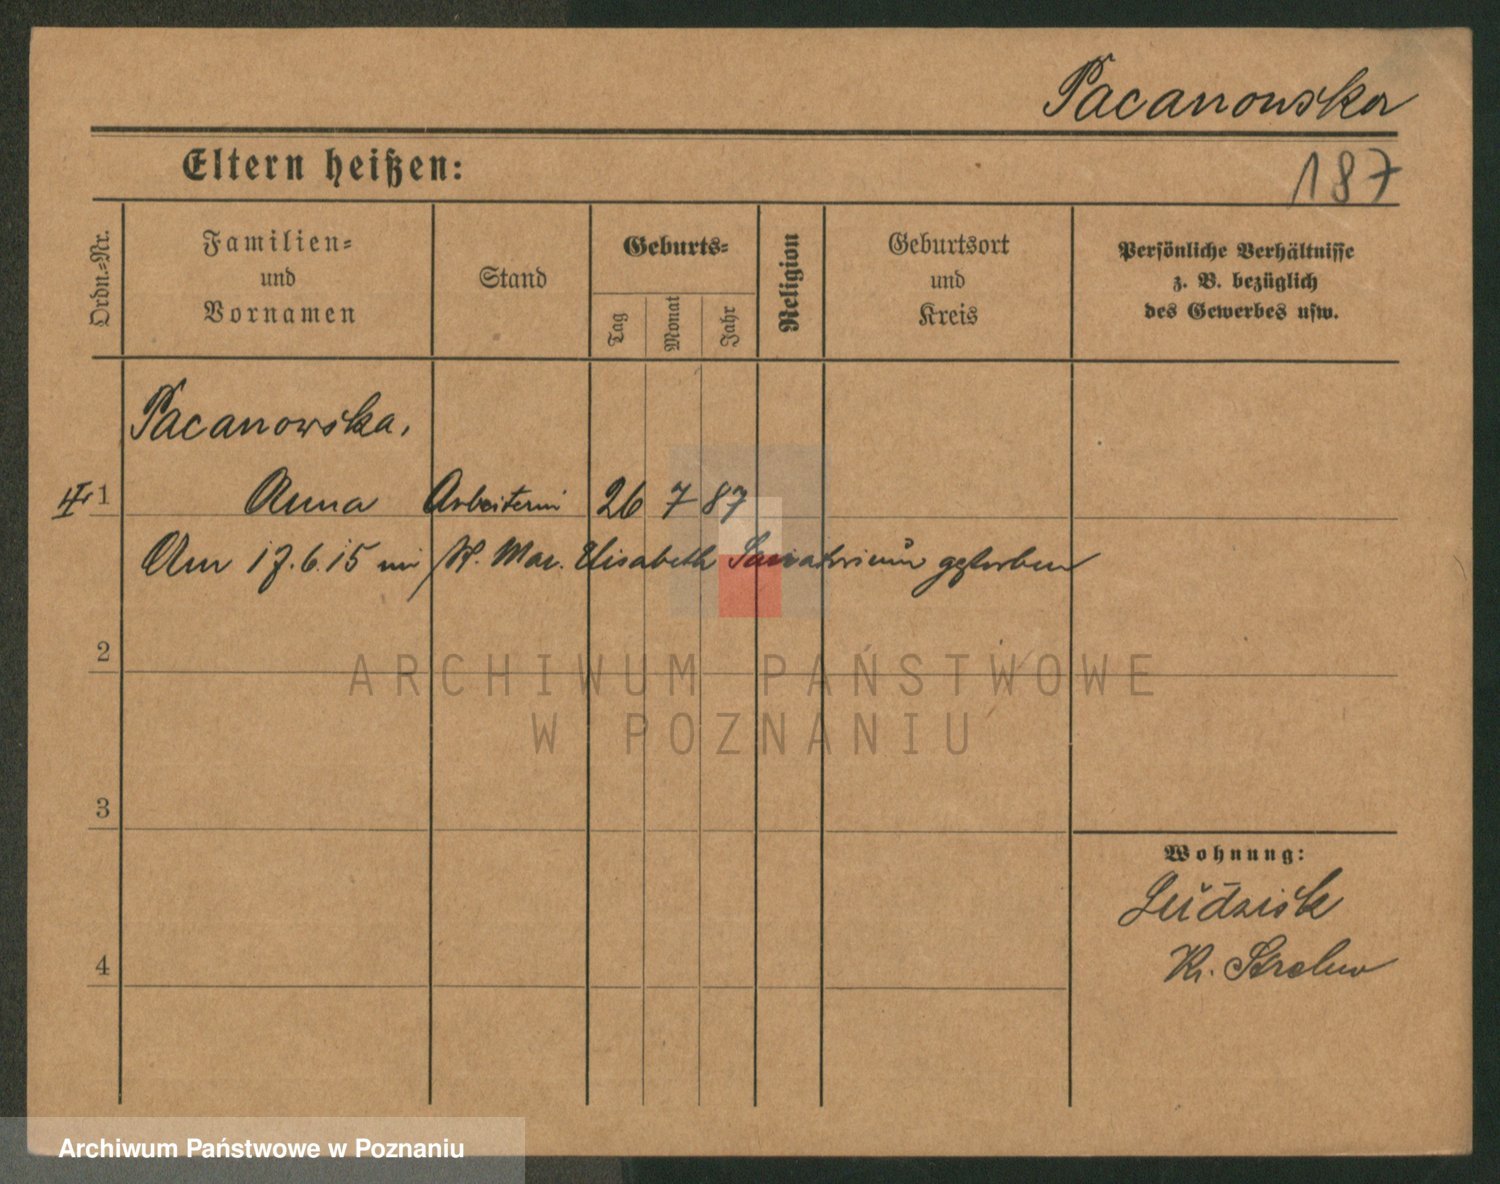 Pacanowska
187
Eltern heißen:
Ordn.=Nr.
Familien=
und
Vornamen
Stand
Geburts=
Tag
Monat
Jahr
Religion
Geburtsort
und
Kreis
Persönliche Verhältnisse
z. B. bezüglich
des Gewerbes usw.
Pacanowska,
1 Anna Arbeiterin 26 7 87
Am 17.6.15 im St. Mar. Elisabeth Sanatorium gestorben
2
3
4
Wohnung:
Kr. Strelno
ARCHIWUM PAŃSTWOWE
W POZNANIU
Archiwum Państwowe w Poznaniu